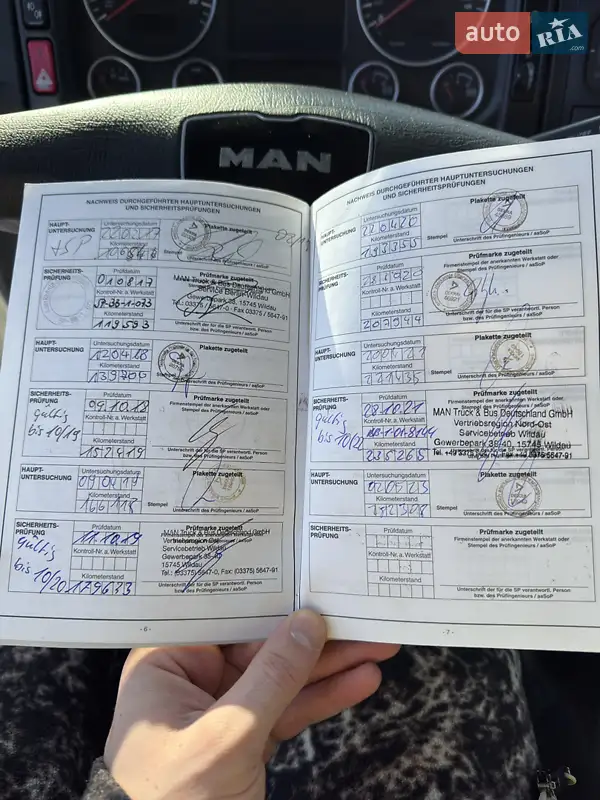 auto RIA .com
MAN
NACHWEIS DURCHGEFÜHRTER HAUPTUNTERSUCHUNGEN
UND SICHERHEITSPRÜFUNGEN
HAUPT-
UNTERSUCHUNG
Untersuchungsdatum
Kilometerstand
Plakette zugeteilt
Stempel
Unterschrift des Prüfingenieurs / aaSoP
SICHERHEITS-
PRÜFUNG
Prüfdatum
010817
Kontroll-Nr. a. Werkstatt
Kilometerstand
119593
Prüfmarke zugeteilt
MAN Truck & Bus Deutschland GmbH
Service Berlin-Wildau
Unterschrift der für die SP verantwortl. Person
bzw. des Prüfingenieurs / aaSoP
HAUPT-
UNTERSUCHUNG
Untersuchungsdatum
120418
Kilometerstand
139706
Plakette zugeteilt
Unterschrift des Prüfingenieurs / aaSoP
SICHERHEITS-
PRÜFUNG
gültig
bis 10/19
Prüfdatum
09.10.18
Kontroll-Nr. a. Werkstatt
Kilometerstand
152419
Prüfmarke zugeteilt
Firmenstempel der anerkannten Werkstatt oder
Stempel des Prüfingenieurs / aaSoP
Unterschrift der für die SP verantwortl. Person
bzw. des Prüfingenieurs / aaSoP
HAUPT-
UNTERSUCHUNG
Untersuchungsdatum
Kilometerstand
166118
Plakette zugeteilt
Stempel
Unterschrift des Prüfingenieurs / aaSoP
SICHERHEITS-
PRÜFUNG
gültig
bis 10/20
Prüfdatum
11.10.19
Kontroll-Nr. a. Werkstatt
Kilometerstand
179633
Prüfmarke zugeteilt
MAN Truck & Bus Deutschland GmbH
Vertriebsregion Ost
Servicebetrieb Wildau
Gewerbepark 38/40
15745 Wildau
Tel.: (03375) 5647-0, Fax: (03375) 5647-91
Unterschrift der für die SP verantwortl. Person
bzw. des Prüfingenieurs / aaSoP
- 6 -
NACHWEIS DURCHGEFÜHRTER HAUPTUNTERSUCHUNGEN
UND SICHERHEITSPRÜFUNGEN
HAUPT-
UNTERSUCHUNG
Untersuchungsdatum
220420
Kilometerstand
193355
Plakette zugeteilt
Stempel
Unterschrift des Prüfingenieurs / aaSoP
SICHERHEITS-
PRÜFUNG
Prüfdatum
Kontroll-Nr. a. Werkstatt
Kilometerstand
207944
Prüfmarke zugeteilt
Firmenstempel der anerkannten Werkstatt oder
Stempel des Prüfingenieurs / aaSoP
Unterschrift der für die SP verantwortl. Person
bzw. des Prüfingenieurs / aaSoP
HAUPT-
UNTERSUCHUNG
Untersuchungsdatum
Kilometerstand
Plakette zugeteilt
Stempel
Unterschrift des Prüfingenieurs / aaSoP
SICHERHEITS-
PRÜFUNG
gültig
bis 10/22
Prüfdatum
28.10.21
Kontroll-Nr. a. Werkstatt
Kilometerstand
235265
Prüfmarke zugeteilt
Firmenstempel der anerkannten Werkstatt oder
MAN Truck & Bus Deutschland GmbH
Vertriebsregion Nord-Ost
Servicebetrieb Wildau
Gewerbepark 38/40, 15745 Wildau
HAUPT-
UNTERSUCHUNG
Untersuchungsdatum
Kilometerstand
Plakette zugeteilt
Stempel
Unterschrift des Prüfingenieurs / aaSoP
SICHERHEITS-
PRÜFUNG
Prüfdatum
Kontroll-Nr. a. Werkstatt
Kilometerstand
Prüfmarke zugeteilt
Firmenstempel der anerkannten Werkstatt oder
Stempel des Prüfingenieurs / aaSoP
Unterschrift der für die SP verantwortl. Person
bzw. des Prüfingenieurs / aaSoP
- 7 -